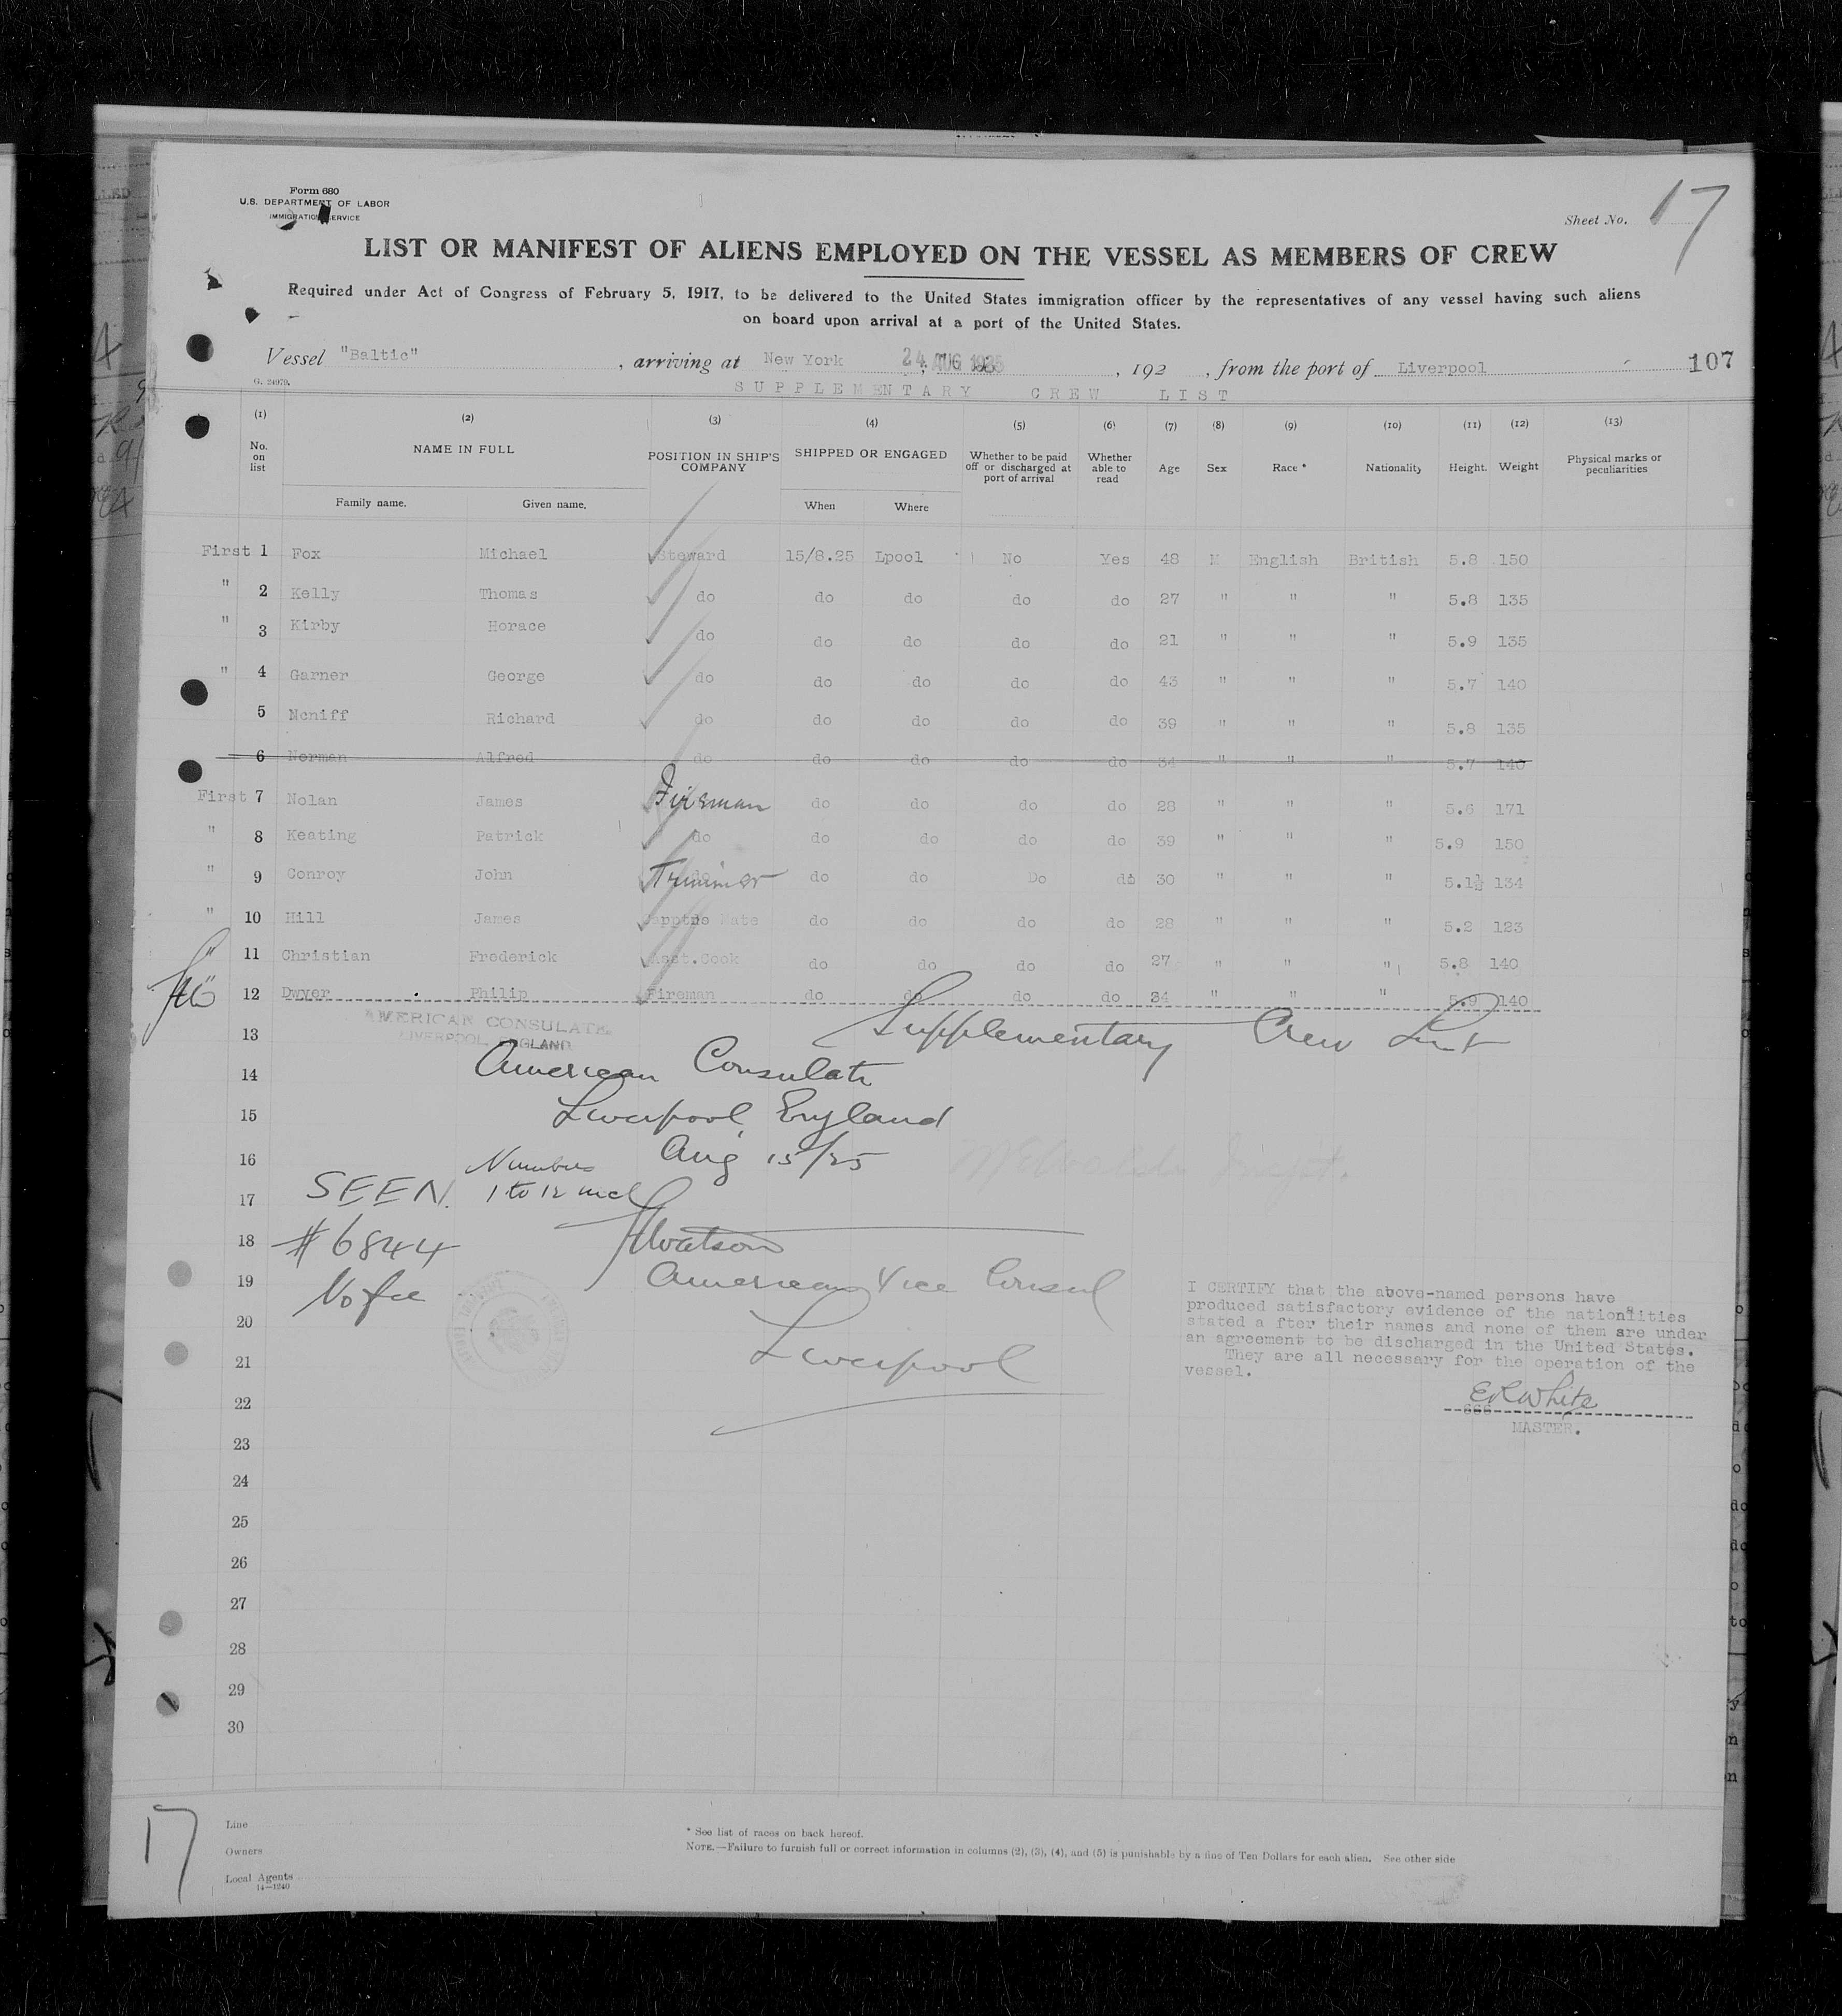 Form 680
U.S. DEPARTMENT OF LABOR
IMMIGRATION SERVICE
Sheet No. 17
LIST OR MANIFEST OF ALIENS EMPLOYED ON THE VESSEL AS MEMBERS OF CREW
Required under Act of Congress of February 5, 1917, to be delivered to the United States immigration officer by the representatives of any vessel having such aliens
on board upon arrival at a port of the United States.
Vessel "Baltic", arriving at New York 24 AUG 1925, 192 , from the port of Liverpool 107
G. 24979.
SUPPLEMENTARY CREW LIST
(1) (2) (3) (4) (5) (6) (7) (8) (9) (10) (11) (12) (13)
No. on list NAME IN FULL POSITION IN SHIP'S COMPANY SHIPPED OR ENGAGED Whether to be paid off or discharged at port of arrival Whether able to read Age Sex Race * Nationality Height. Weight Physical marks or peculiarities
Family name. Given name. When Where
First 1 Fox Michael Steward 15/8.25 Lpool No Yes 48 M English British 5.8 150
" 2 Kelly Thomas do do do do do 27 " " " 5.8 135
" 3 Kirby Horace do do do do do 21 " " " 5.9 135
" 4 Garner George do do do do do 43 " " " 5.7 140
5 Mcniff Richard do do do do do 39 " " " 5.8 135
6 Norman Alfred do do do do do 34 " " " 5.7 140
First 7 Nolan James Fireman do do do do 28 " " " 5.6 171
" 8 Keating Patrick do do do do do 39 " " " 5.9 150
" 9 Conroy John Trimmer do do Do do 30 " " " 5.1½ 134
" 10 Hill James Mate do do do do 28 " " " 5.2 123
" 11 Christian Frederick Asst.Cook do do do do 27 " " " 5.8 140
" 12 Dwyer Philip Fireman do do do do 34 " " " 5.9 140
AMERICAN CONSULATE
LIVERPOOL, ENGLAND
13 Supplementary Crew List
14 American Consulate
15 Liverpool, England
16 Aug 15/25
Numbers
17 SEEN. 1 to 12 incl
18 #6844 Watson
19 No fee American Vice Consul
20
21 Liverpool
I CERTIFY that the above-named persons have
produced satisfactory evidence of the nationalities
stated a fter their names and none of them are under
an agreement to be discharged in the United States.
They are all necessary for the operation of the
vessel.
E R White
MASTER.
22
23
24
25
26
27
28
29
30
17
Line
Owners
Local Agents
14—1240
* See list of races on back hereof.
NOTE.—Failure to furnish full or correct information in columns (2), (3), (4), and (5) is punishable by a fine of Ten Dollars for each alien. See other side